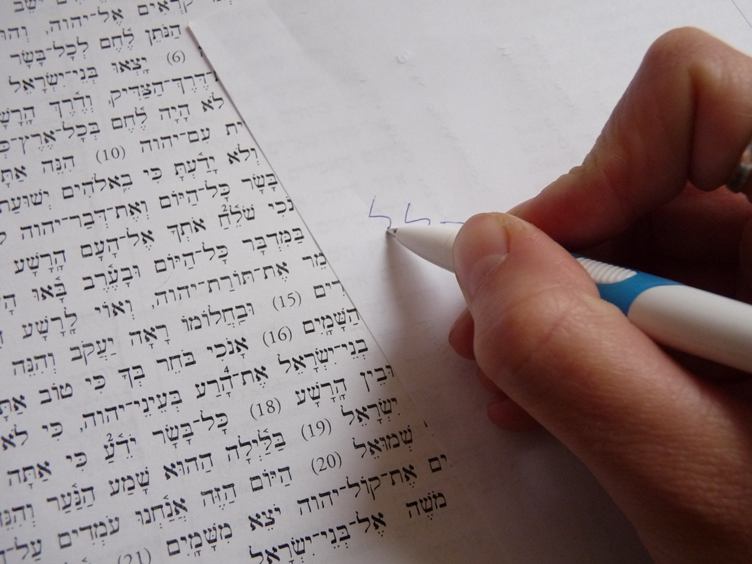 קֹרְאִים אֶל־יְהוָה,
הַנֹּתֵן לֶחֶם לְכָל־בָּשָׂר
(6) יָצְאוּ בְּנֵי־יִשְׂרָאֵל
הַצַּדִּיק, וְדֶרֶךְ הָרָשָׁע
לֹא הָיָה לֶחֶם בְּכָל־אֶרֶץ־
עִם־יהוה (10) הִנֵּה
וְלֹא יָדַעְתָּ כִּי בֵאלֹהִים
בָּשָׂר כָּל־הַיּוֹם וְאֶת־דְּבַר־יהוה
שֹׁלֵחַ אֹתְךָ אֶל־הָעָם הָרָשָׁע
בַּמִּדְבָּר כָּל־הַיּוֹם וּבָעֶרֶב בָּאוּ
אֶת־תּוֹרַת־יהוה, וְאוֹי לָרָשָׁע
(15) וּבַחֲלוֹמוֹ רָאָה יַעֲקֹב וְהִנֵּה
הַשָּׁמָיִם (16) אָנֹכִי בֹּחֵר בְּךָ כִּי טוֹב
בְּנֵי־יִשְׂרָאֵל אֶת־הָרַע בְּעֵינֵי־יהוה, כִּי לֹא
וּבֵין הָרָשָׁע (18) כָּל־בָּשָׂר יֹדֵעַ כִּי אַתָּה
יִשְׂרָאֵל (19) בַּלַּיְלָה הַהוּא שָׁמַע הַנַּעַר
שְׁמוּאֵל (20) הַיּוֹם הַזֶּה אֲנַחְנוּ עֹמְדִים עַל־
ים אֶת־קוֹל־יהוה יֹצֵא מִשָּׁמַיִם (21)
מֹשֶׁה אֶל־בְּנֵי־יִשְׂרָאֵל